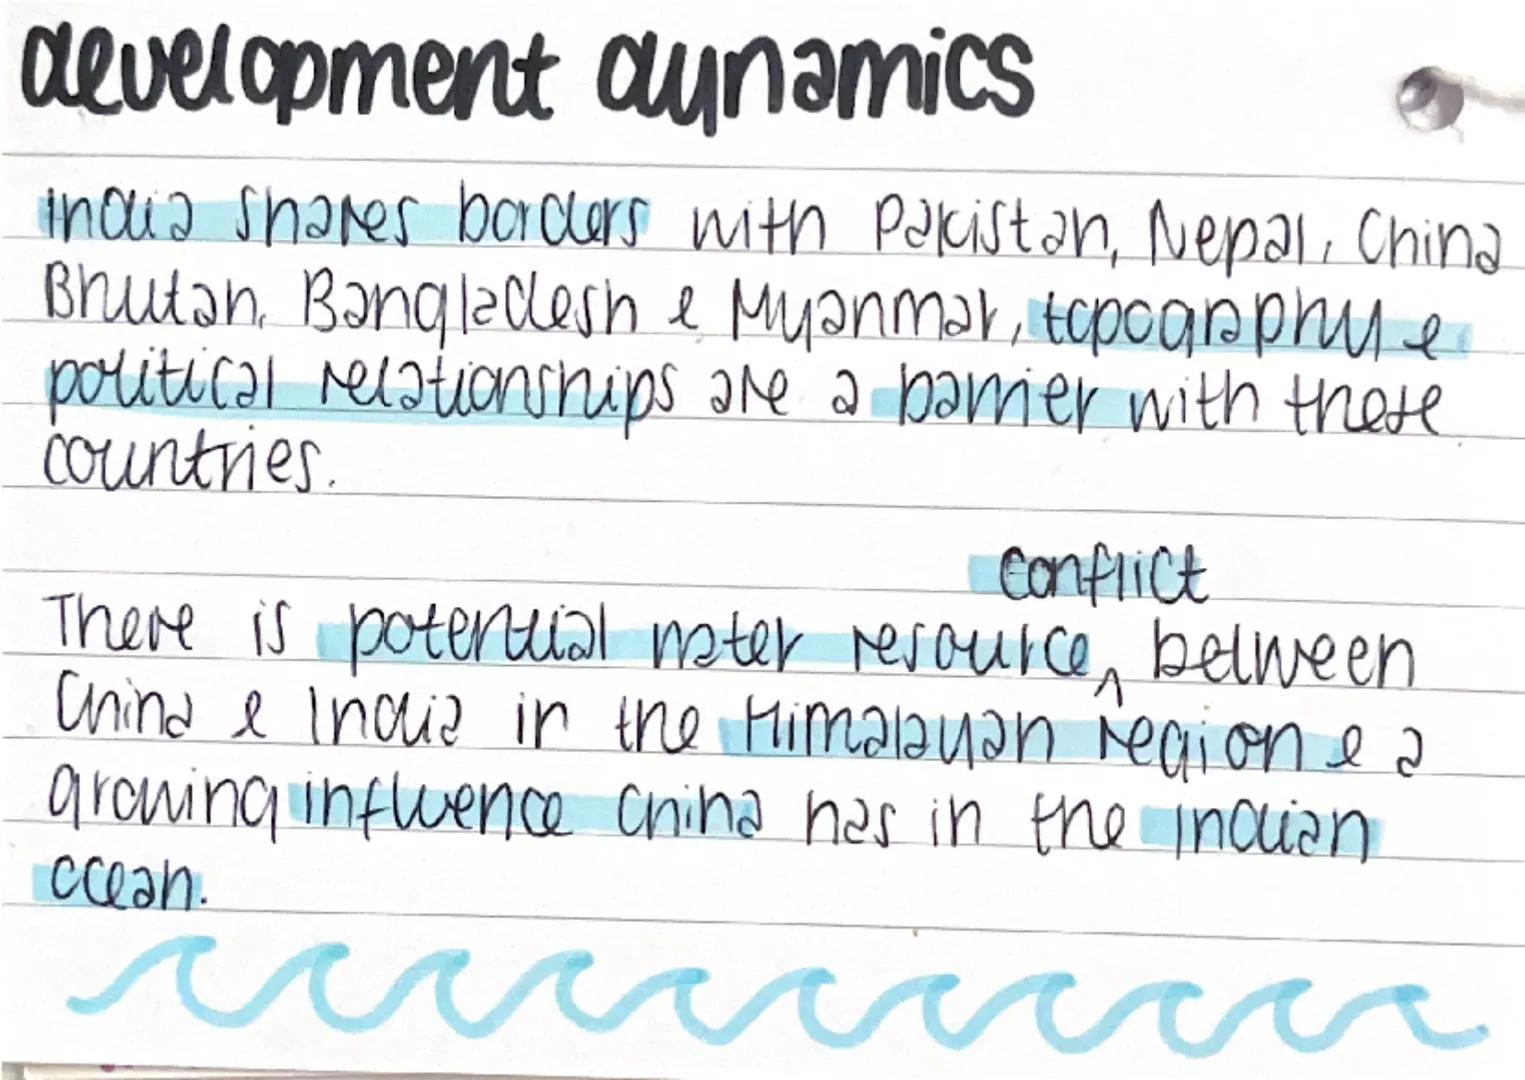 development dynamics
India shares borders with Pakistan, Nepal, China
Bhutan, Bangladesh & Myanmar, topography &
political relationships are a barrier with these
countries.
conflict
There is potential water resource ^ between
China & India in the Himalayan region & a
growing influence China has in the indian
ocean.